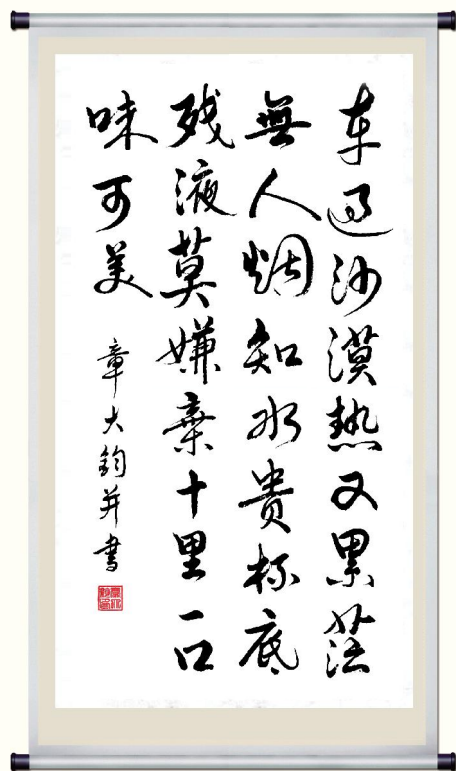 车过沙漠热又累茫
無人烟知水贵杯底
残液莫嫌棄十里一口
味可美
章大鈞并書